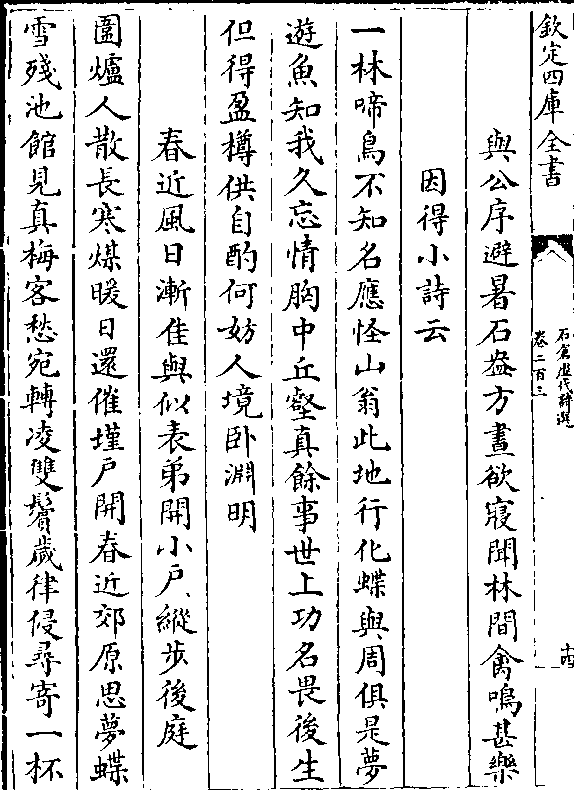 欽定四庫全書
石倉歷代詩選
卷二百三
十四
與公序避暑石盎方晝欲寢聞林間禽鳴甚樂
因得小詩云
一林啼鳥不知名應怪山翁此地行化蝶與周俱是夢
遊魚知我久忘情胸中丘壑真餘事世上功名畏後生
但得盈樽供自酌何妨人境卧淵明
春近風日漸佳與似表弟開小戸縱步後庭
圍爐人散長寒煤暖日還催墐戸開春近郊原思夢蝶
雪殘池館見真梅客愁宛轉凌雙鬢歲律侵尋寄一杯